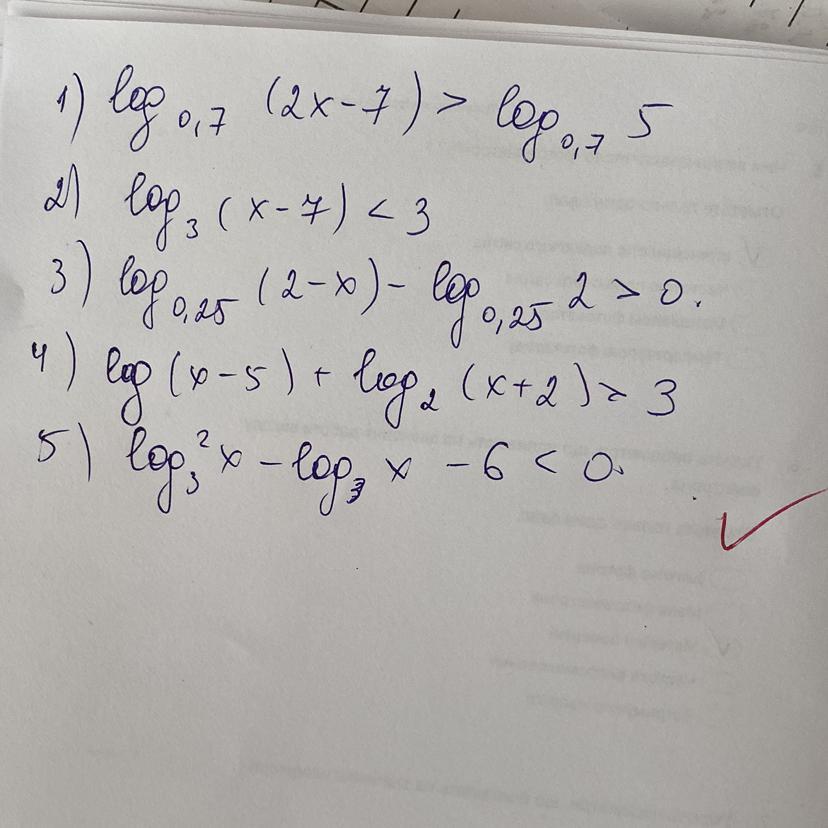 1) log₀,₇ (2x-7) > log₀,₇ 5
2) log₃ (x-7) < 3
3) log₀,₂₅ (2-x) - log₀,₂₅ 2 > 0.
4) log (x-5) + log₂ (x+2) > 3
5) log₃² x - log₃ x - 6 < 0.